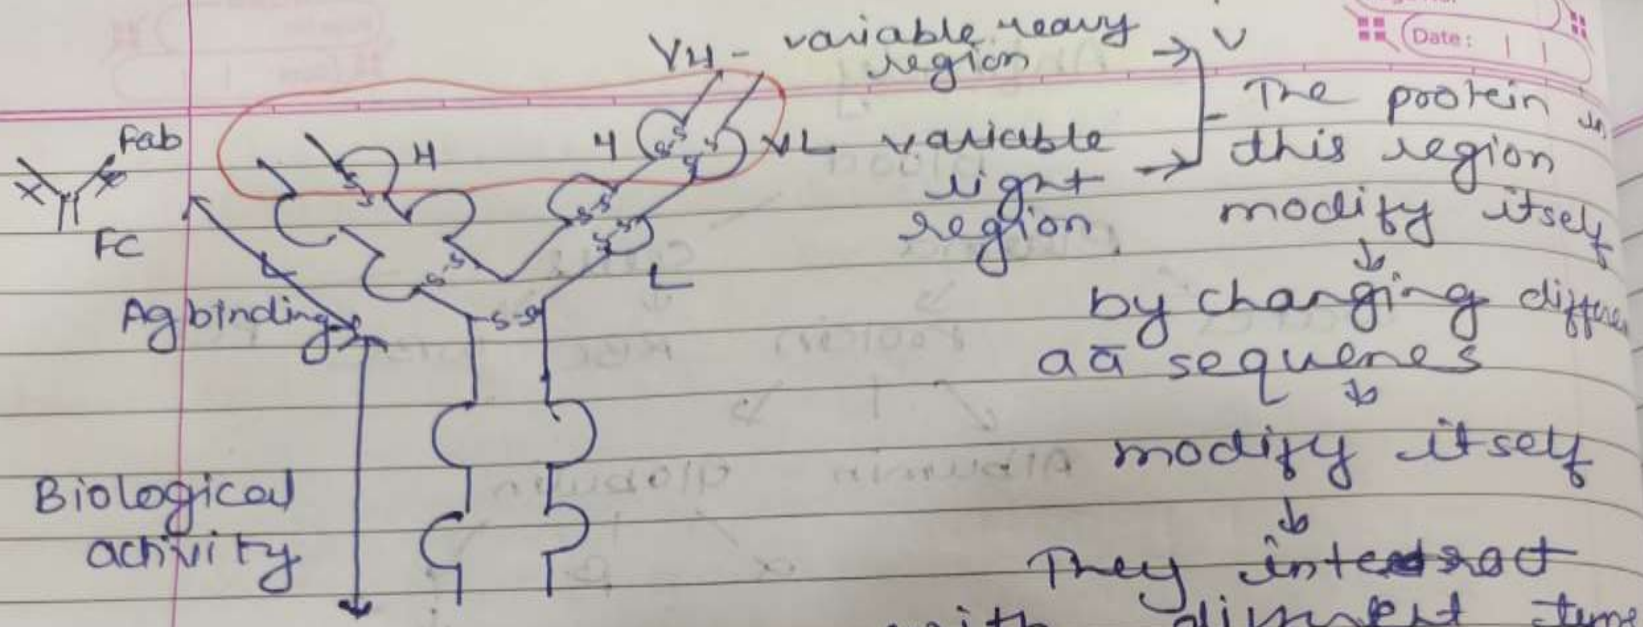 Date:
VH - variable heavy
region
→ V
VL variable
light
region
The protein in
this region
modify itself
by changing
aa sequenes
modify itself
They interact
with
Fab
FC
H
H
S S
S S
S-S
S S
S-S
L
L
Ag binding
Biological
activity